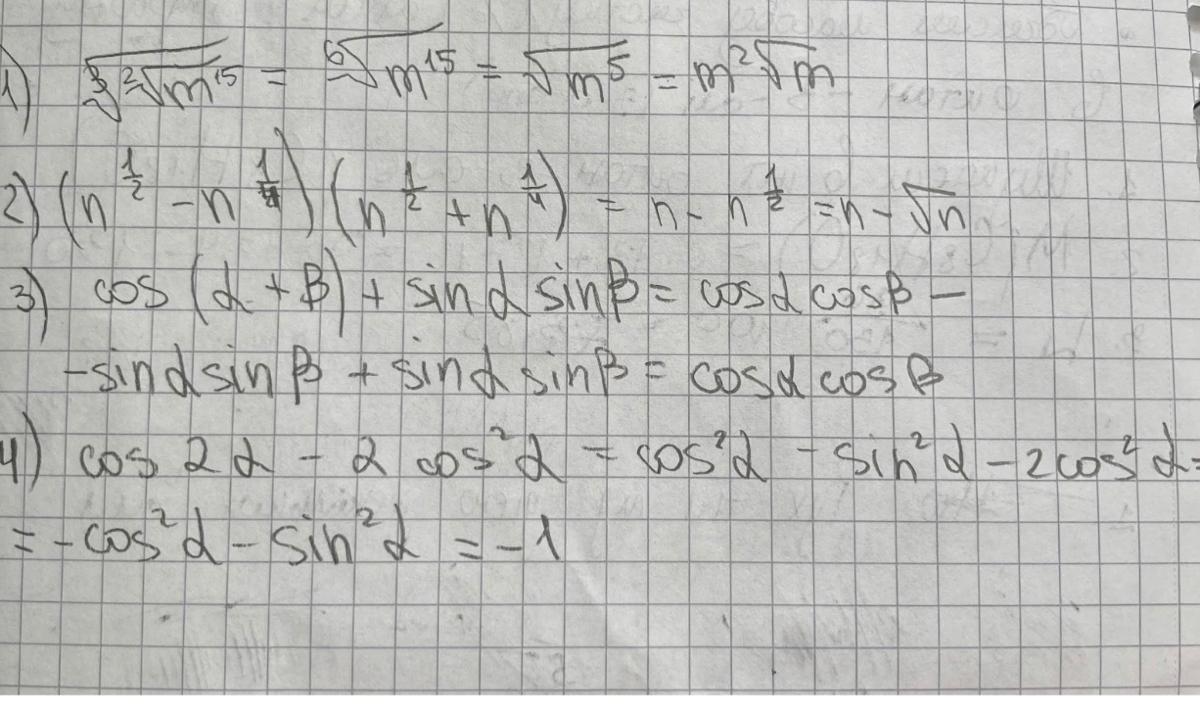 1) ∛(²√m¹⁵) = ⁶√m¹⁵ = √m⁵ = m²√m
2) (n^(1/2) - n^(1/4))(n^(1/2) + n^(1/4)) = n - n^(1/2) = n - √n
3) cos(α + β) + sinα sinβ = cosα cosβ -
- sinα sinβ + sinα sinβ = cosα cosβ
4) cos 2α - 2 cos²α = cos²α - sin²α - 2cos²α =
= - cos²α - sin²α = -1